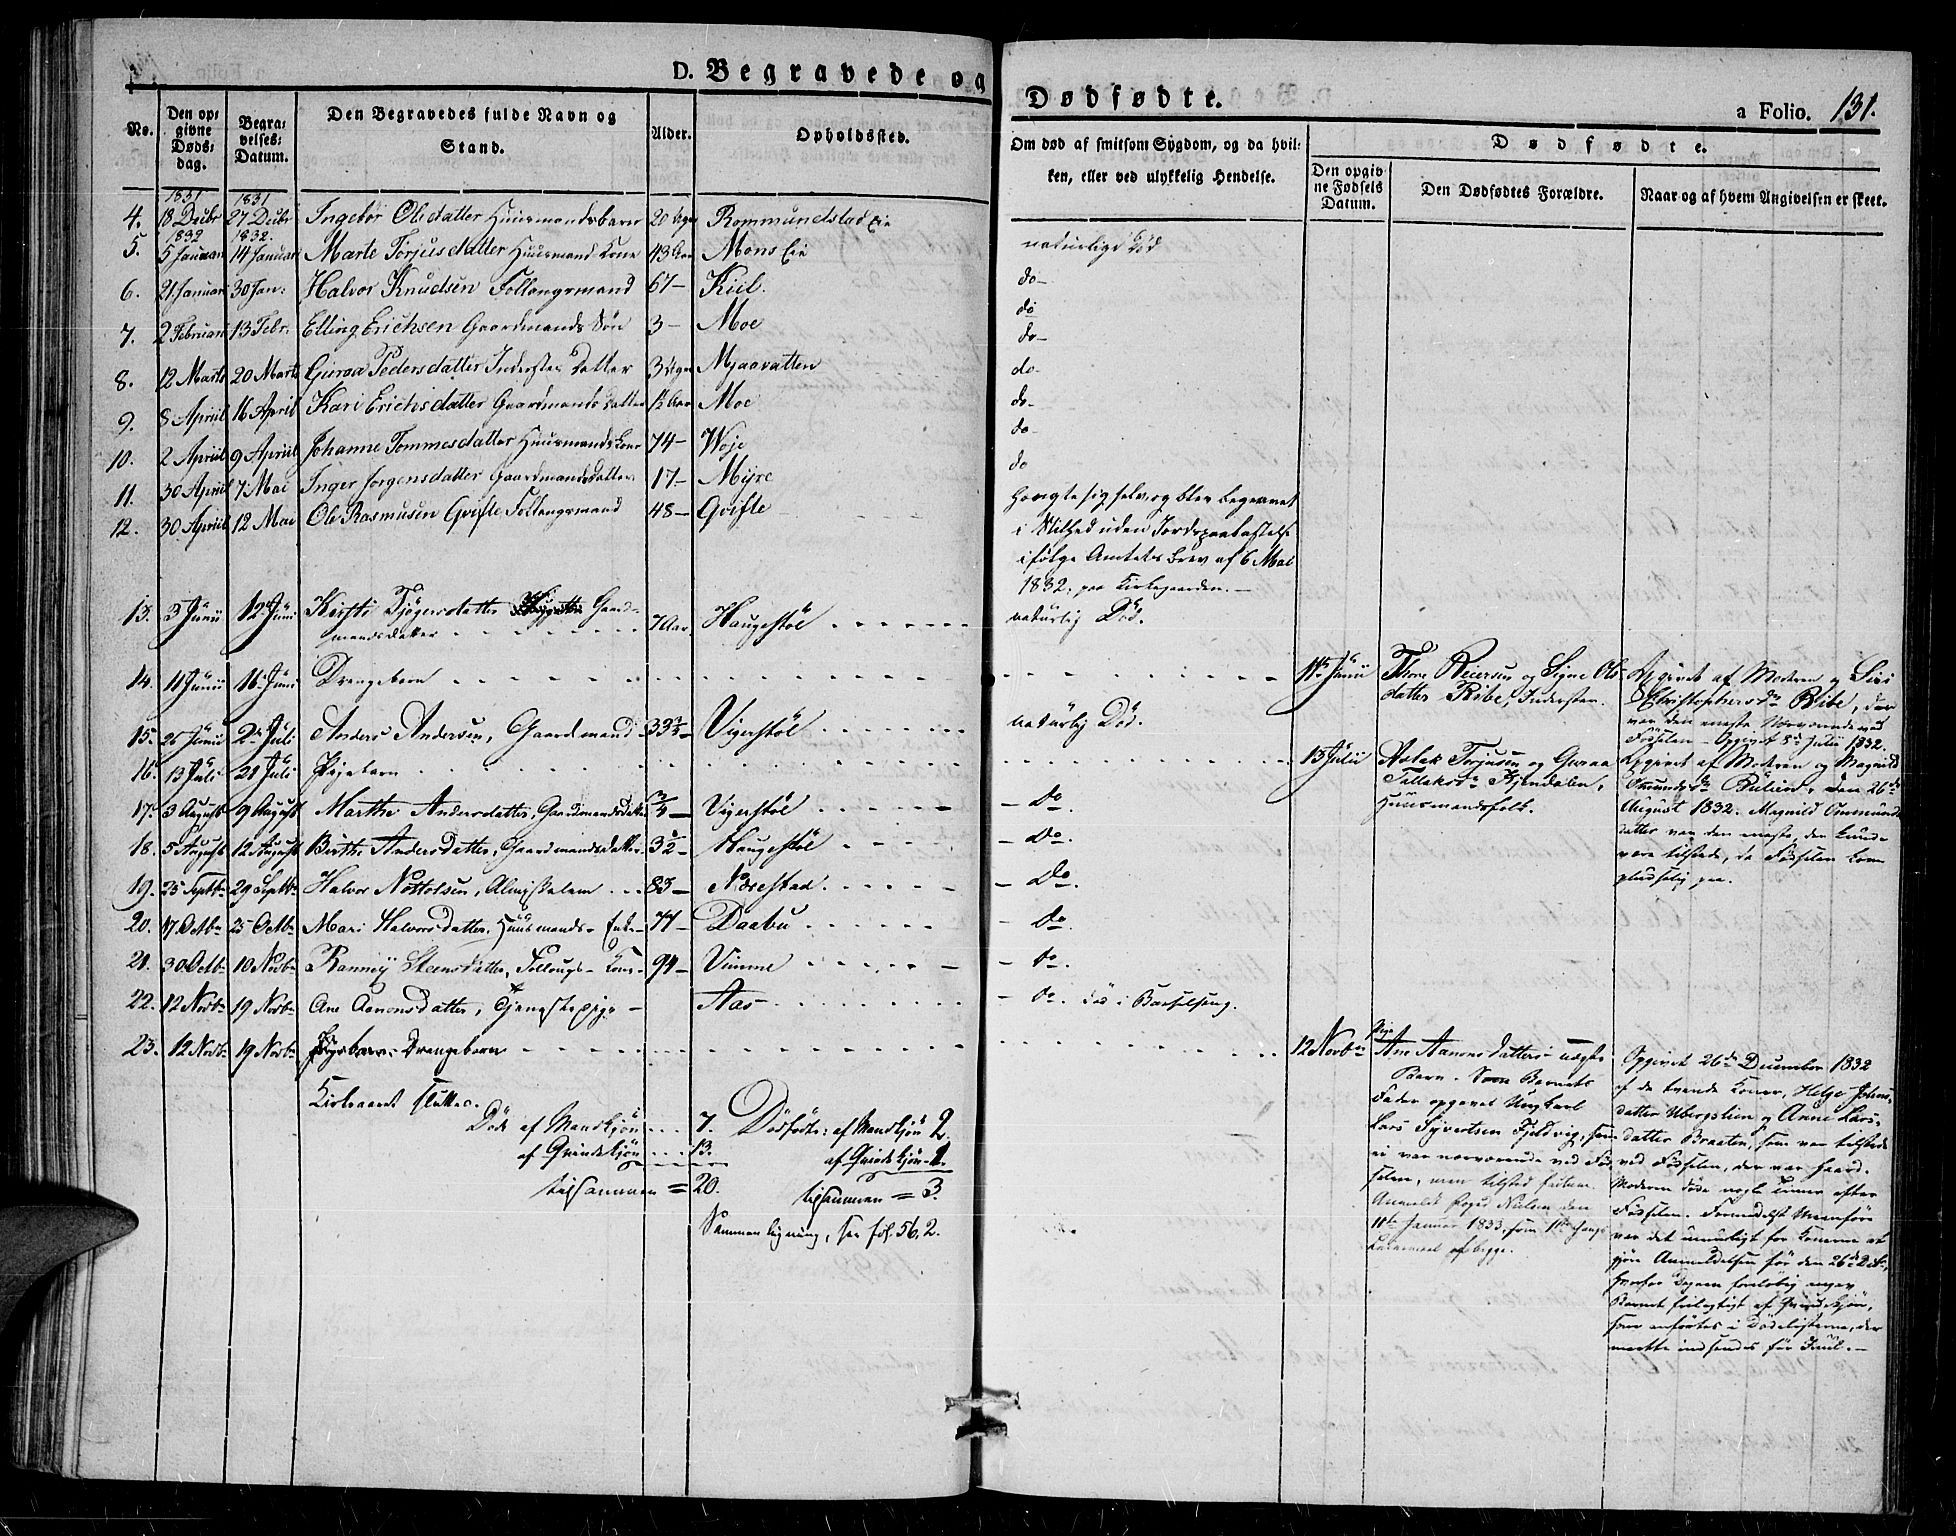 D. Begravede og
Dødfødte.
a Folio. 131.
No.
Den opgivne Dødsdag.
Begravelses-Datum.
Den Begravedes fulde Navn og Stand.
Alder.
Opholdssted.
Om død af smitsom Sygdom, og da hvilken, eller ved ulykkelig Hendelse.
Dødfødte.
Den opgivne Fødsels Datum.
Den Dødfødtes Forældre.
Naar og af hvem Angivelsen er skeet.
1831 1831
4. 18 Decbr 27 Decbr Ingebor Olsdatter Huusmandsbarn 20 Rommundstad Eie
1832 1832.
5. 5 Januar 14 Januar Marte Torjusdatter Huusmand Kone 43 Aar Mons Eie naturlige Død
6. 21 Januar 30 Jan: Halvor Knudsen Follaugsmand 67 – Kiil. do –
7. 2 Februar 13 Febr. Elling Erichsen Gaardmands Søn 3 – Moe do
8. 12 Marts 20 Marts Guroa Pedersdatter Inderstes Datter 3 Mjaavatten do –
9. 8 Apriil 16 April Kari Erichsdatter Gaardmands Datter 1½ Aar Moe do –
10. 2 Apriil 9 Apriil Johanne Tommesdatter Huusmands Kone 74 – Woje do –
11. 30 April 7 Mai Inger Jorgensdatter Gaardmandsdatter 17 – Myre do
12. 30 Apriil 12 Mai Ole Rasmusen Gvifte Follaugsmand 48 – Gvifte hængte sig selv, og blev begravet
i Stilhed uden Jordspaakastelse
ifølge Amtets Brev af 6 Mai
1832, paa Kirkegaarden. –
13. 3 Junii 12 Juni Kirsti Tjøgersdatter Gaard-
mandsdatter 7 Aar. Haugestøl naturlig Død.
14. 11 Junii 16 Juni Drengebarn 11te Junii Thore Reiersen og Signe Ols-
datter Ribe, Indersten. Opgivet af Modren og Siri
Christophersdr Ribe, der
var den eneste Nærværende ved
Fødselen – Opgivet 8de Julii 1832.
15. 25 Junii 2 Juli Anders Andersen, Gaardmand 33 Vigerstøl naturlig Død.
16. 13 Juli 21 Juli Pigebarn 13 Julii Aslak Torjusen og Guroa
Tallaksdr Kjendalen,
Huusmandsfolk. Opgivet af Modren og Magnild
Omundsdr den 26de
August 1832. Magnild Ommunds-
datter var den eneste, der kunde
være tilstede, da Fødselen kom
pludselig paa.
17. 3 August 9 August Marthe Andersdatter, Gaardmandsdatter ¾ – Vigerstøl – do.
18. 5 August 12 August Birthe Andersdatter, Gaardmandsdatter 3½ – Haugestøl – do.
19. 25 Septbr 29 Septbr Halvor Nottolsen, Almisselem 83 – Nærestad – do.
20. 17 Octbr 25 Octbr Mari Halvorsdatter, Huusmands-Enke 77 – Daabu – do.
21. 30 Octbr 10 Novbr Ranney Steensdatter, Follaugs-Kone 94 – Vimme – do.
22. 12 Novbr 19 Novbr Ane Aanonsdatter, Tjenestepige – Aas – do. Død i Barselseng.
23. 12 Novbr 19 Novbr Drengebarn 12 Novbr Pige
Ane Aanonsdatters uægte
Barn. Som Barnets
Fader opgivet Ungkarl
Lars Syvertsen Fjeldvig, som
ei var nærværende ved Fød-
selen, men
den
11te Januar 1833, som
Leiermaal af begge.
Opgivet 26de December 1832
af de tvende Koner, Helje Johns-
datter Ubergslien og Anne Lars-
datter Braaten, som var tilstede
ved Fødselen, der var haard.
Moderen døde nogle Timer efter
Fødselen. Formedelst Menføre
var det umuligt for Konerne at
gjøre Anmeldelsen før den 26de Dcbr,
hvorfor foreløbig angav
Barnet feilagtigt af Qvindekjøn,
som anførtes i Dødelisterne, der
maatte indsendes før Juul. –
Kirkeaaret sluttes.
Døde af Mandkjøn 7.
af Qvindekjøn 13.
tilsammen = 20.
Dødfødte: af Mandkjøn 2.
af Qvindekjøn 1.
tilsammen = 3.
Sammenligning, see fol. 56, 2.